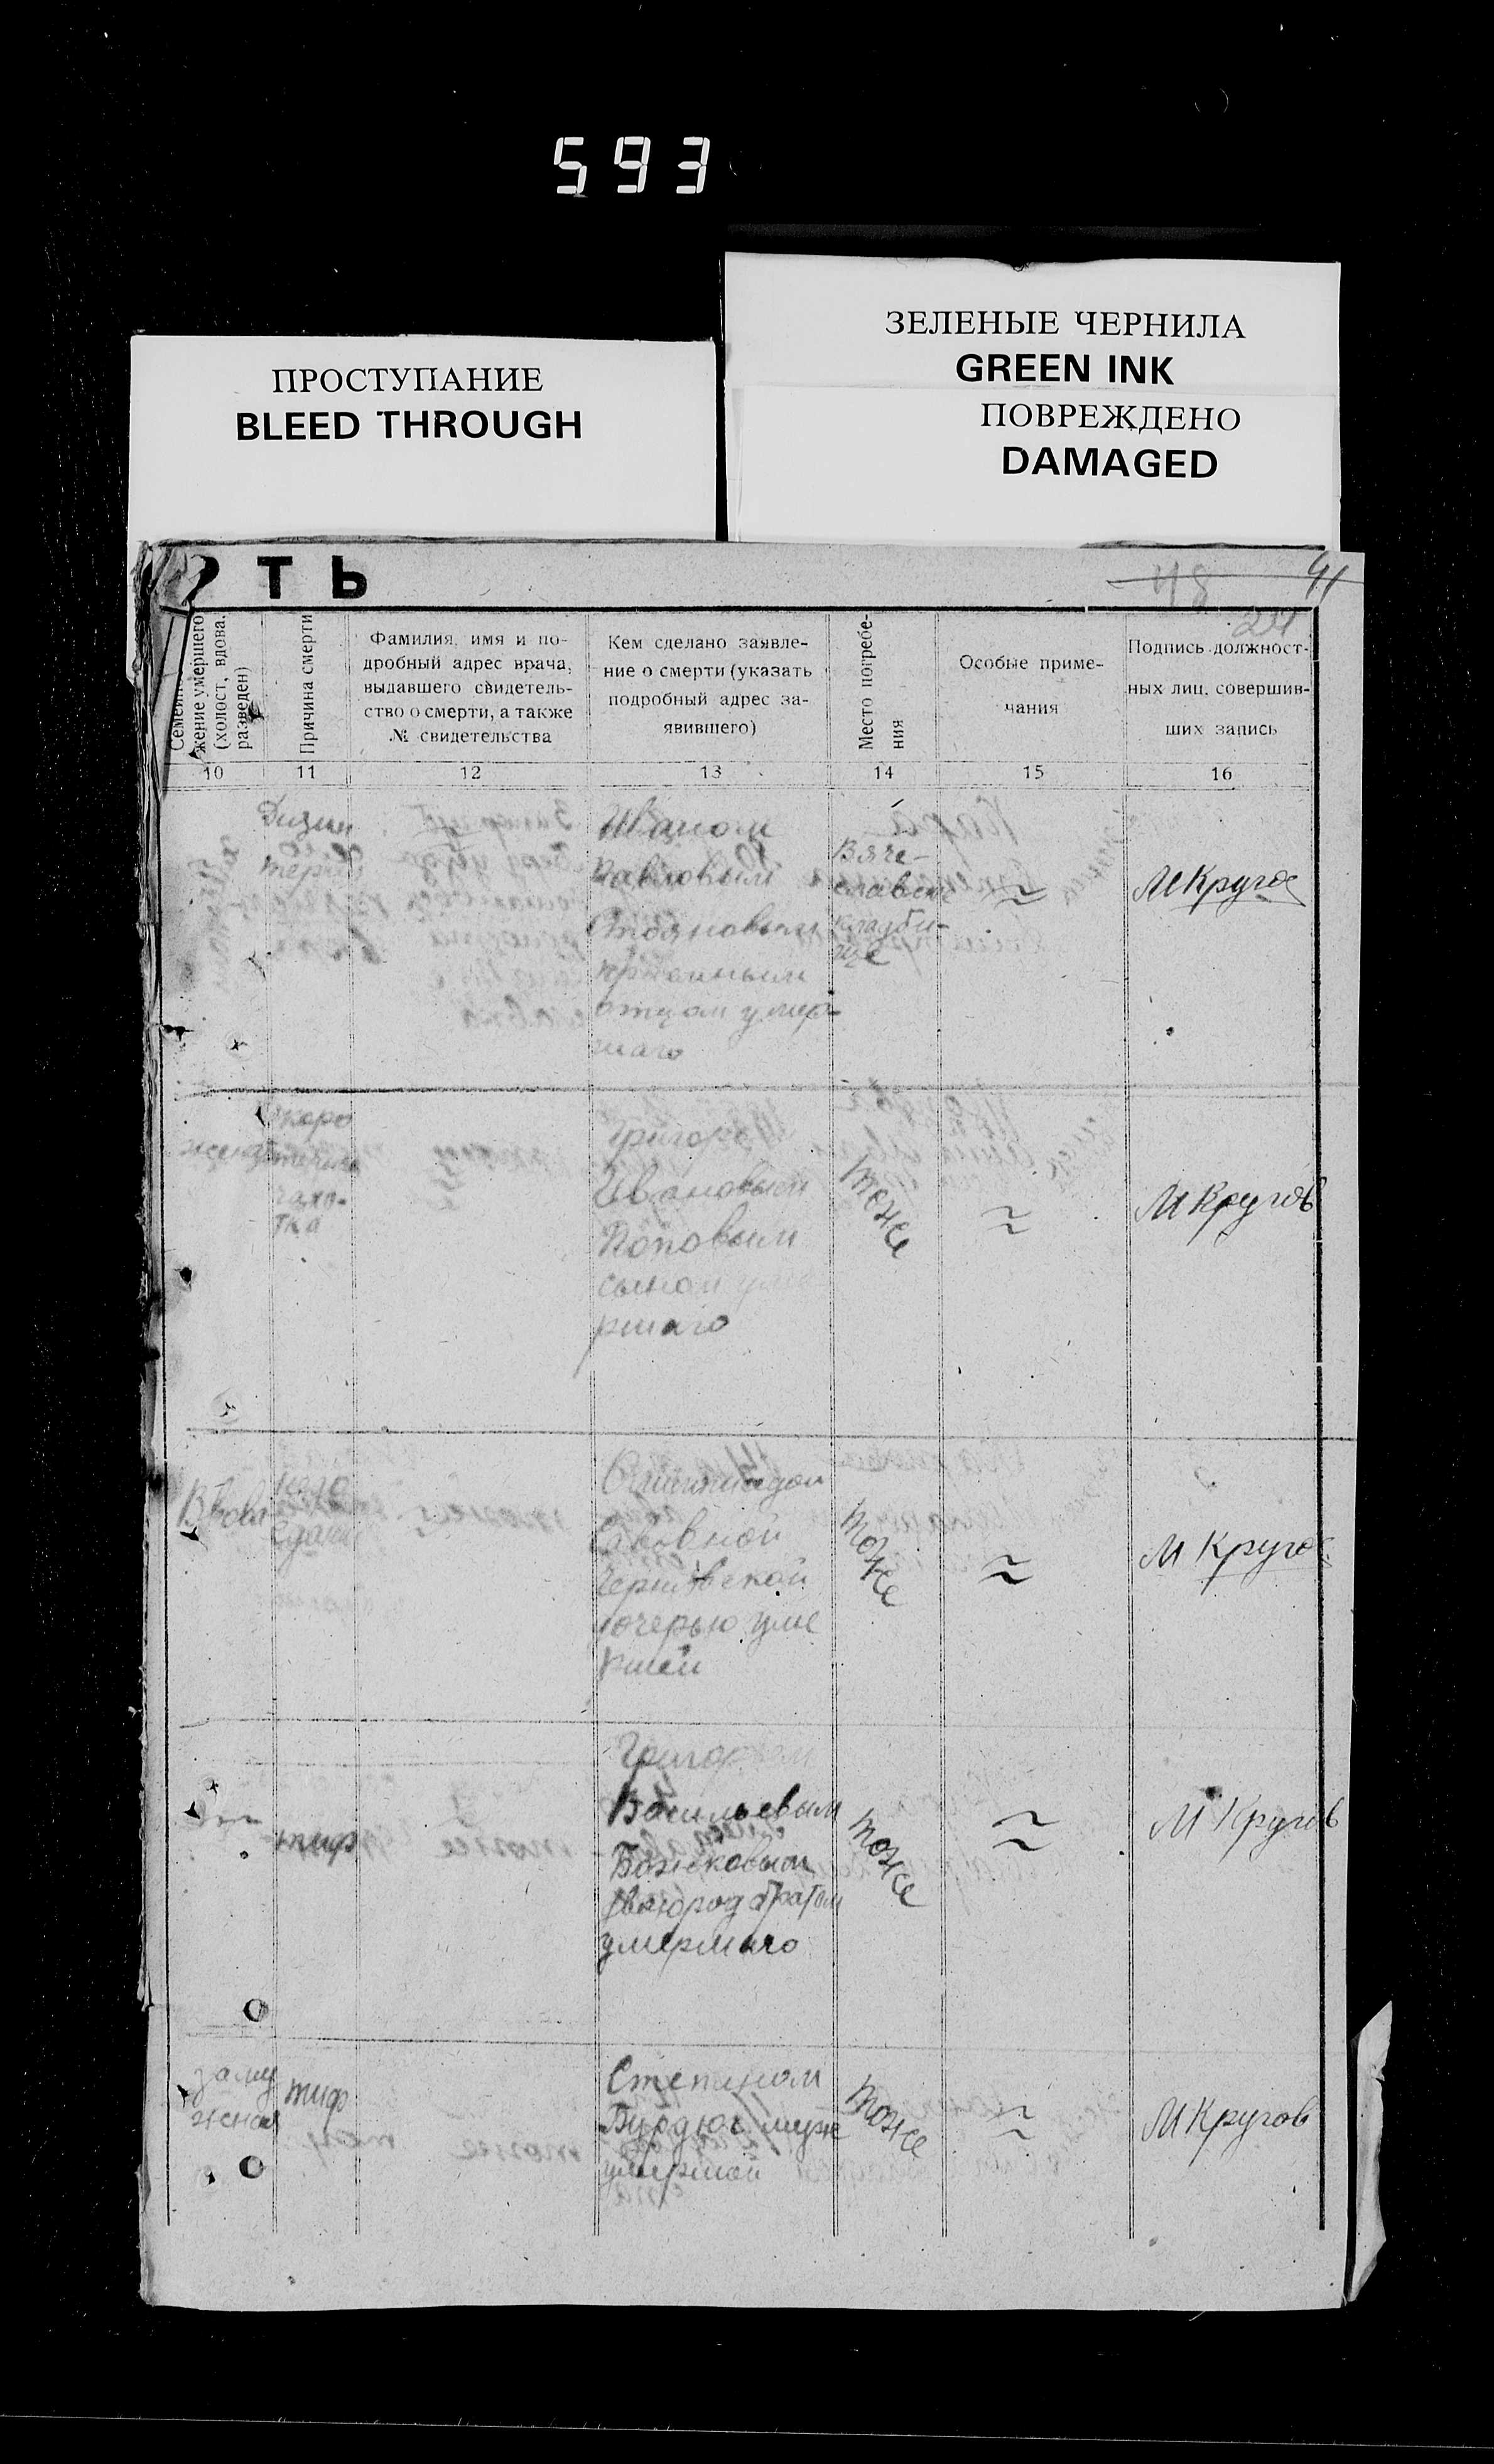 593
ПРОСТУПАНИЕ
BLEED THROUGH
ЗЕЛЕНЫЕ ЧЕРНИЛА
GREEN INK
ПОВРЕЖДЕНО
DAMAGED
ТЬ
48
41
жение умершего
(холост, вдова,
разведен)
Причина смерти
Фамилия, имя и по-
дробный адрес врача,
выдавшего свидетель-
ство о смерти, а также
№ свидетельства
Кем сделано заявле-
ние о смерти (указать
подробный адрес за-
явившего)
Место погребе-
ния
Особые приме-
чания
Подпись должност-
ных лиц, совершив-
ших запись
10 11 12 13 14 15 16
Дизин
терия
Иваном
Павловым
Стояновым
приемным
отцом умер-
шаго
Вяче-
славск
кладби-
ще
МКругов
женат
скоро
чахо-
тка
Григорием
Ивановым
Поповым
сыном уме
ршаго
тоже
МКругов
Вдова
Саввовной
дочерью уме
ршей
тоже
М Кругов
тиф
Григорием
Васильевым
Божковым
двоюрод братом
умершаго
тоже
М Кругов
заму
жняя
тиф
Степаном
Бурдюг муж
умершой
тоже
МКругов